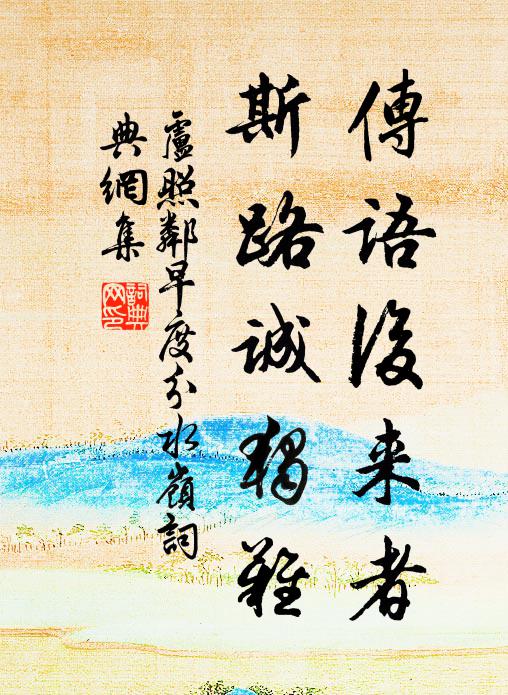 傳語後来者
斯路誠獨難
盧照鄰早度分水嶺詞
典網集
詞典
网印